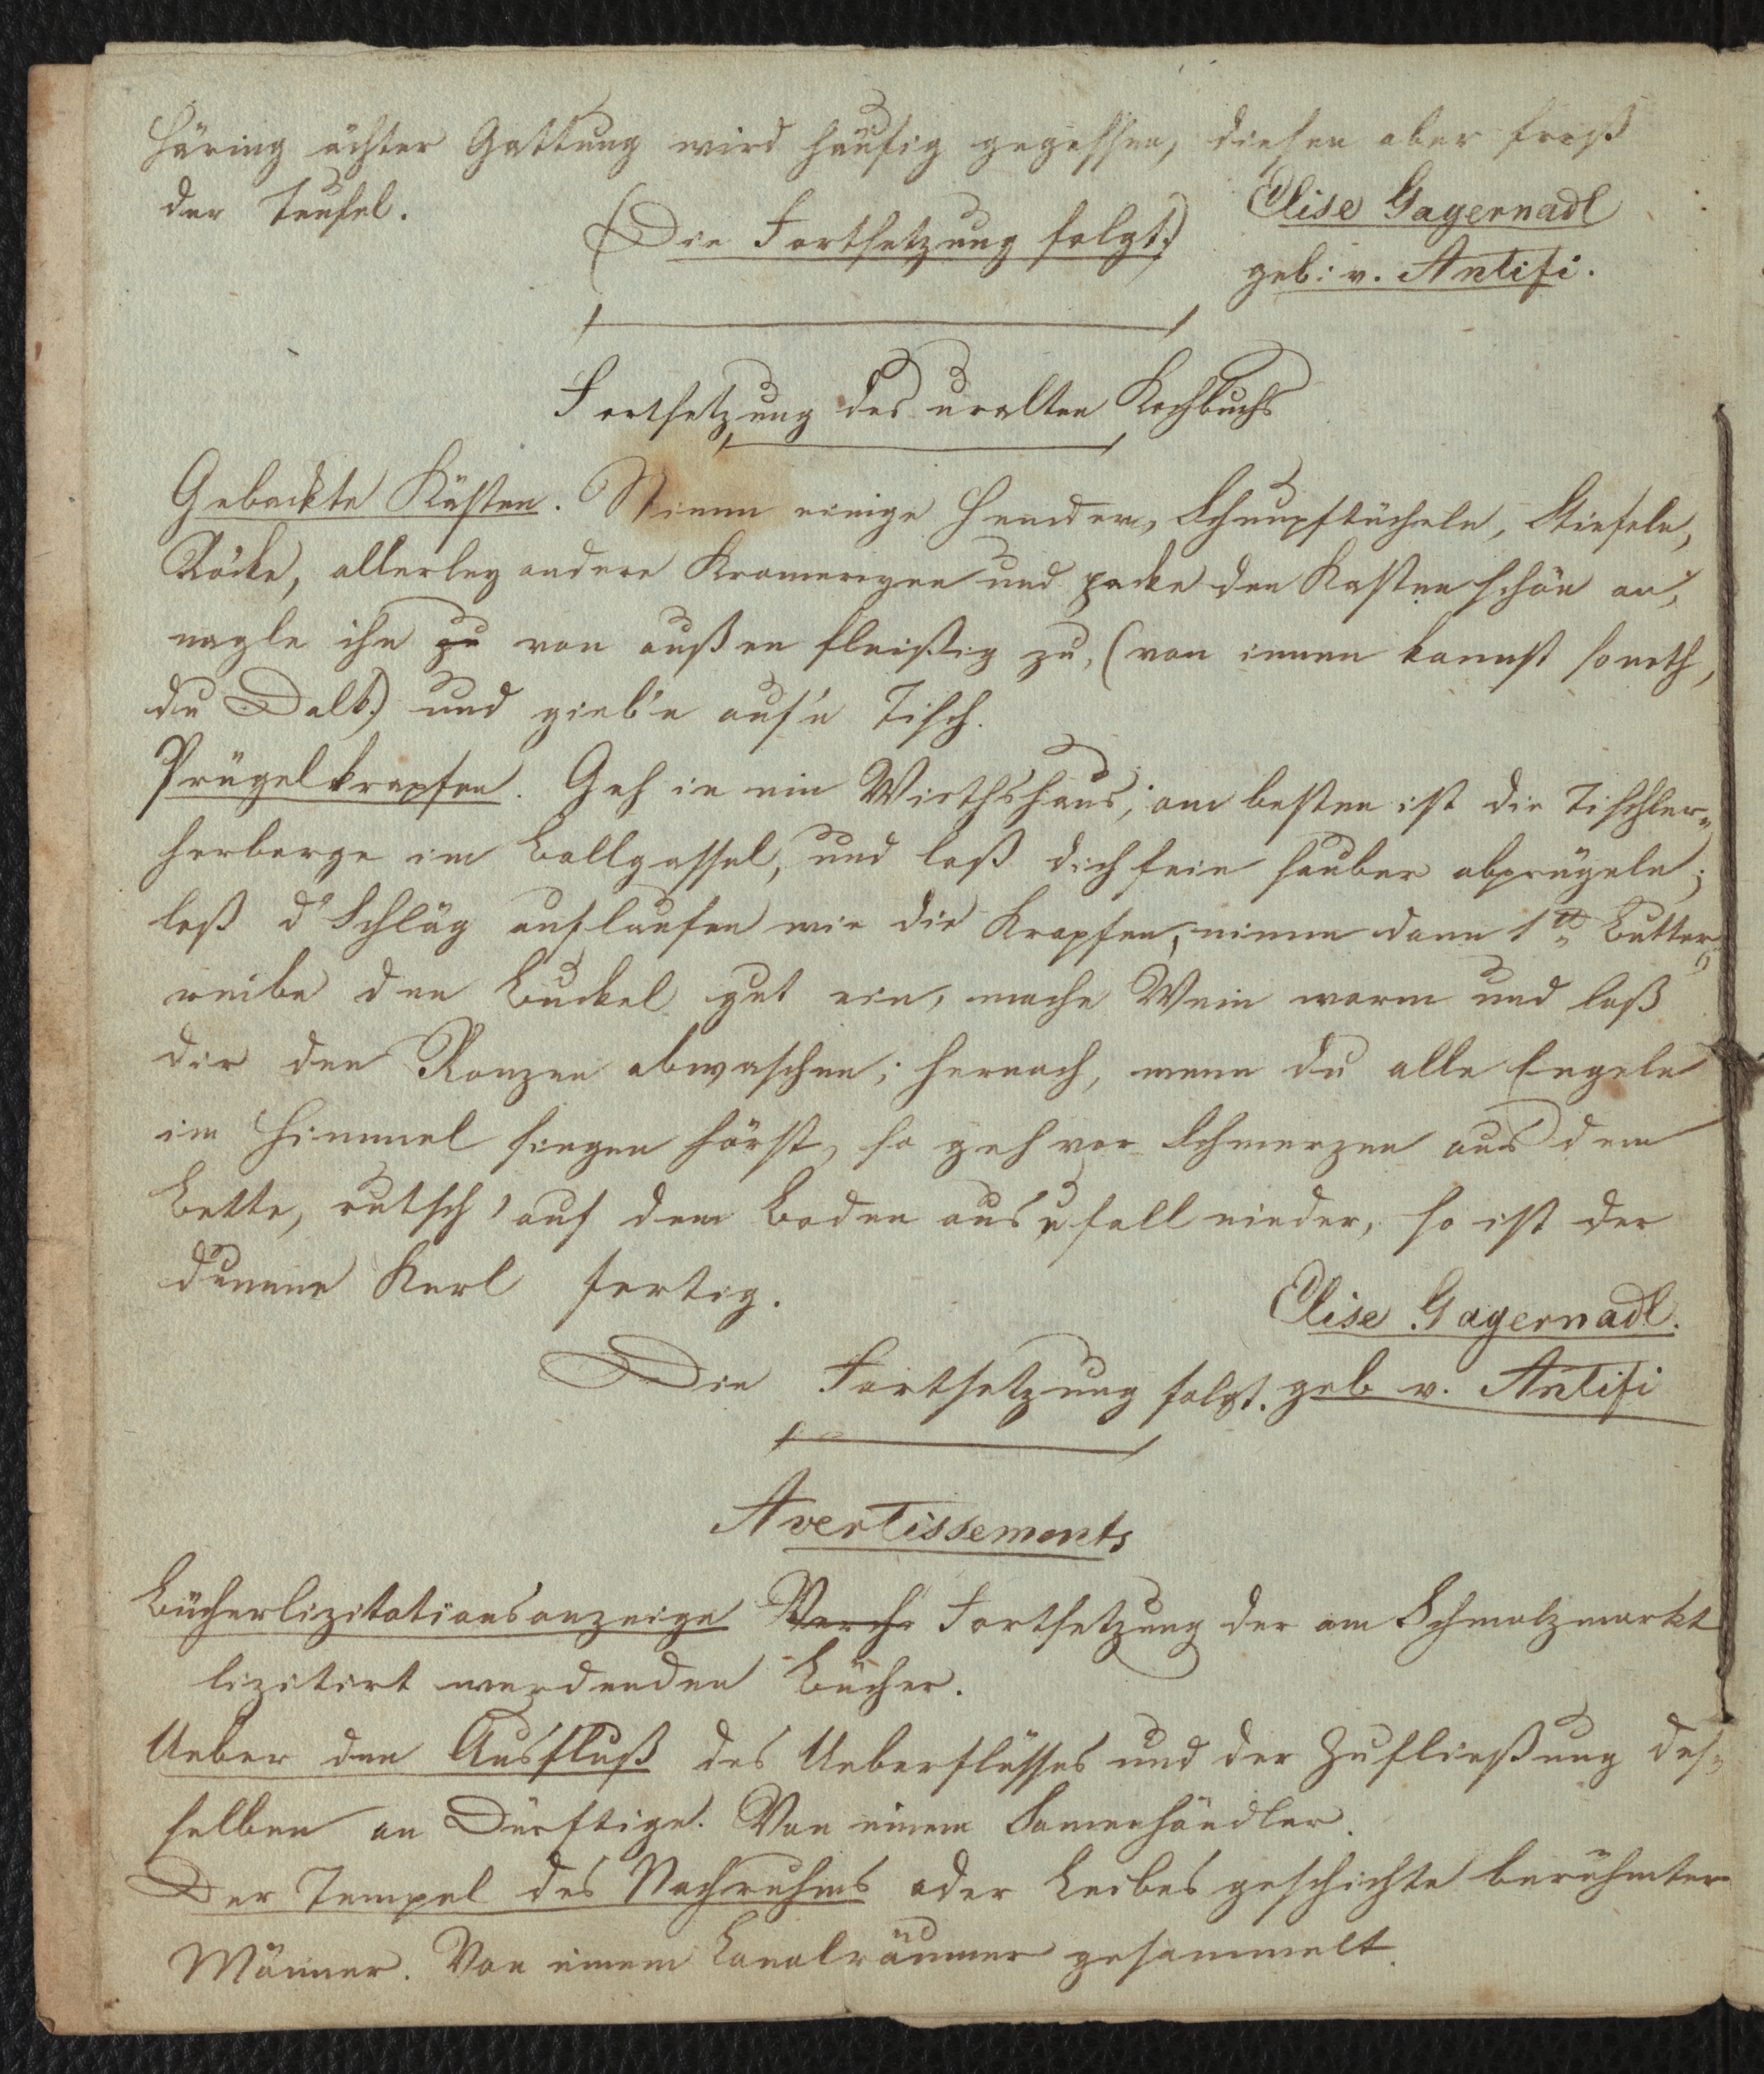 Häring ächter Gattung wird häufig gegessen, diesen aber freß
der Teufel.
(Die Fortsetzung folgt.)
Elise Gagernadl
geb: v. Antifi.
Fortsetzung des uralten Kochbuchs
Gebackte Kästen. Nimm einige Hemder, Schnupftücheln, Stiefeln,
Röcke, allerley andere Kramereyen und packe den Kasten schön an,
nagle ihn zu von außen fleißig zu, (von innen kannst soneth,
du Dalk.) und gieb'n auf'n Tisch.
Prügelkrapfen. Geh in ein Wirthshaus; am besten ist die Tischler-
herberge im Ballgassel, und laß dich fein sauber abprügeln;
laß d' Schläg auflaufen wie die Krapfen, nimm dann 1 ℔ Butter,
reibe den Buckel gut ein, mache Wein warm und laß
dir den Ranzen abwaschen; hernach, wenn du alle Engeln
im Himmel singen hörst, so geh vor Schmerzen aus dem
Bette, rutsch' auf dem Boden aus u fall nieder, so ist der
dumme Kerl fertig.
Elise Gagernadl.
Die Fortsetzung folgt. geb v. Antifi
Avertissements
Bücherlizitationsanzeige Fortsetzung der am Schmalzmarkt
lizitirt werdenden Bücher.
Ueber den Ausfluß des Ueberflusses und der Zufließung des-
selben an Dürftige. Von einem Samenhändler.
Der Tempel des Nachruhms oder Leibesgeschichte berühmter
Männer. Von einem Canalräumer gesammelt.